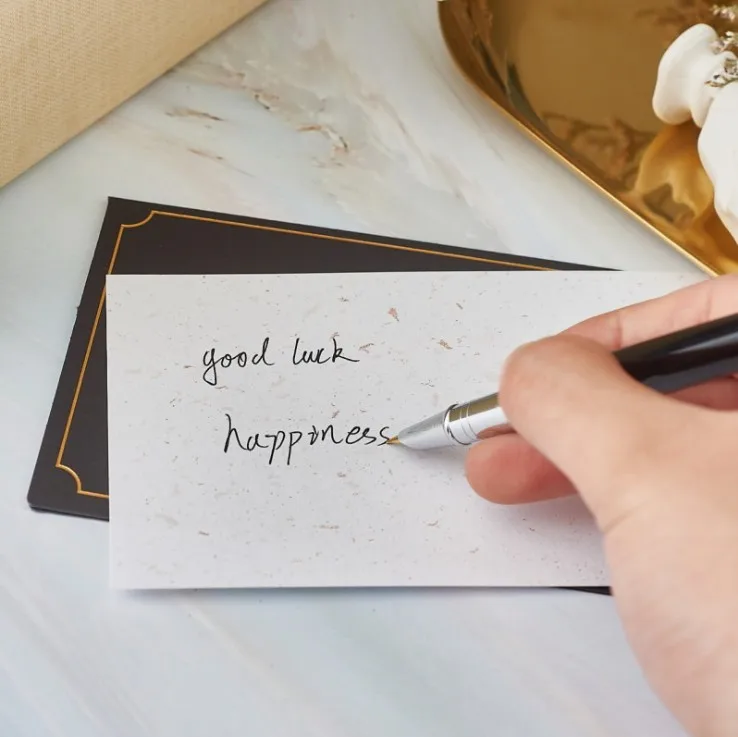 good luck
happiness